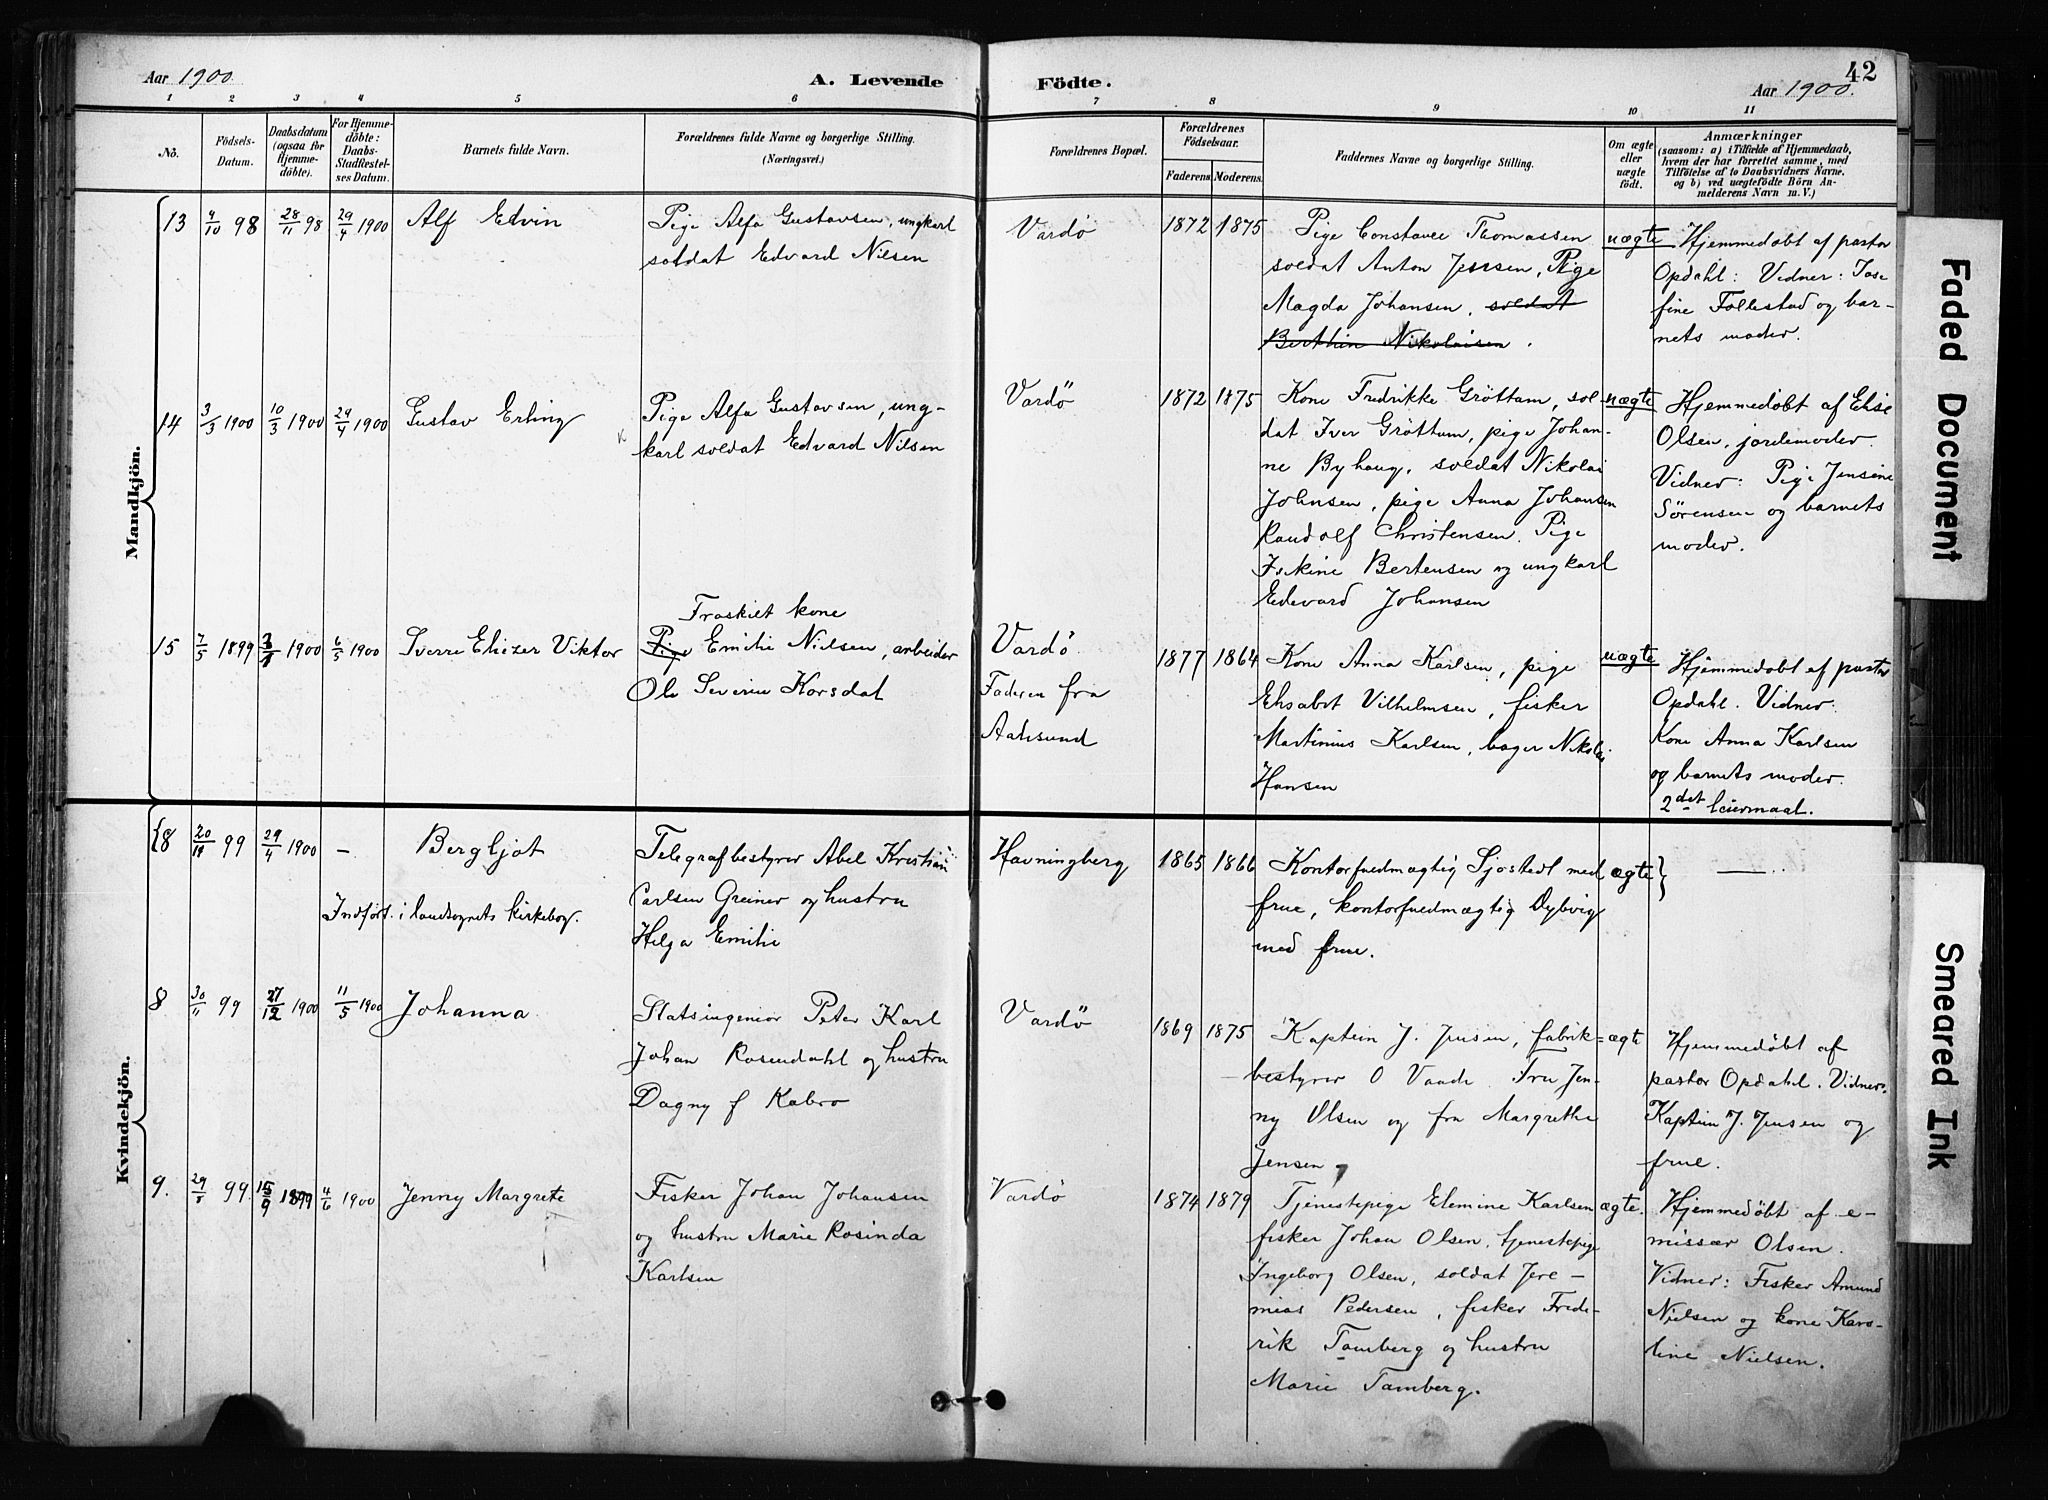 Aar 1900. A. Levende Födte. Aar 1900. 42
1 2 3 4 5 6 7 8 9 10 11
No. Födsels-Datum. Daabsdatum (ogsaa for Hjemmedöbte). For Hjemmedöbte: Daabs-Stadfestelses Datum. Barnets fulde Navn. Forældrenes fulde Navne og borgerlige Stilling. (Næringsvei.) Forældrenes Bopæl. Forældrenes Födselsaar. Faderens Moderens. Faddernes Navne og borgerlige Stilling. Om ægte eller uægte födt. Anmærkninger (saasom: a) i Tilfælde af Hjemmedaab, hvem der har forrettet samme, med Tilföielse af to Daabsvidners Navne, og b) ved uægtefödte Börn Anmelderens Navn m. V.)
Mandkjön.
13 9/10 98 28/11 98 29/4 1900 Alf Edvin
Pige Alfa Gustavsen, ungkarl
soldat Edvard Nilsen
Vardø 1872 1875
Pige Constance Thomassen
soldat Anton Jenssen, Pige
Magda Johansen, soldat
Berthin Nikolaisen.
uægte
Hjemmedøbt af pastor
Opdahl: Vidner: Jose
fine Follestad og bar-
nets moder.
14 3/3 1900 10/3 1900 29/4 1900 Gustav Erling
Pige Alfa Gustavsen, ung-
karl soldat Edvard Nilsen
Vardö 1872 1875
Kone Fredrikke Gröttum, sol-
dat Iver Gröttum, pige Johan-
ne Byhaug, soldat Nikolai
Johnsen, pige Anna Johansen
Raudolf Christensen. Pige
Bertensen og ungkarl
Edevard Johansen
uægte
Hjemmedøbt af Elise
Olsen, jordemoder.
Vidner: Pige Jensine
Sørensen og barnets
moder.
15 7/5 1899 1900 6/5 1900 Sverre Elizer Viktor
Fraskilt kone
Pige Emilie Nielsen, arbeider
Ole Severin Korsdal
Vardø
Faderen fra
Aalesund
1877 1864
Kone Anna Karlsen, pige
Elisabet Vilhelmsen, fisker
Martinius Karlsen, bager Nikolai
Hansen
uægte
Hjemmedøbt af pastor
Opdahl. Vidner:
Kone Anna Karlsen
og barnets moder.
2det leiermaal.
Kvindekjön.
{8 99 29/4 1900 - Bergljot
Indført i landsognets kirkebog.
Telegrafbestyrer Abel Kristian
Carlsen Greiner og hustru
Helga Emilie
Havningberg 1865 1866
Kontorfuldmægtig Sjöstedt med
frue, kontorfuldmægtig Dybvig
med frue.
ægte }
8 30/11 99 27/12 1900 11/5 1900 Johanna
Statsingeniør Peter Karl
Johan Rosendahl og hustru
Dagny f Kabro
Vardø 1869 1875
Kaptein J. Jensen, fabrik-
bestyrer O Vaade. Fru Jen-
ny Olsen og fru Margrethe
Jensen
ægte
Hjemmedøbt af
pastor Opdahl. Vidner:
Kaptein J. Jensen og
frue.
9. 29/8 99. 15/9 1899 4/6 1900 Jenny Margrete
Fisker Johan Johansen
og hustru Marie Rosinda
Karlsen
Vardø 1874 1879
Tjenestepige Elemine Karlsen
fisker Johan Olsen, tjenestepige
Ingeborg Olsen, soldat Jere-
mias Pedersen, fisker Frede-
rik Tamberg og hustru
Marie Tamberg.
ægte.
Hjemmedøbt af e-
missær Olsen.
Vidner: Fisker Amund
Nielsen og kone Karo-
line Nielsen.
Faded Document
Smeared Ink